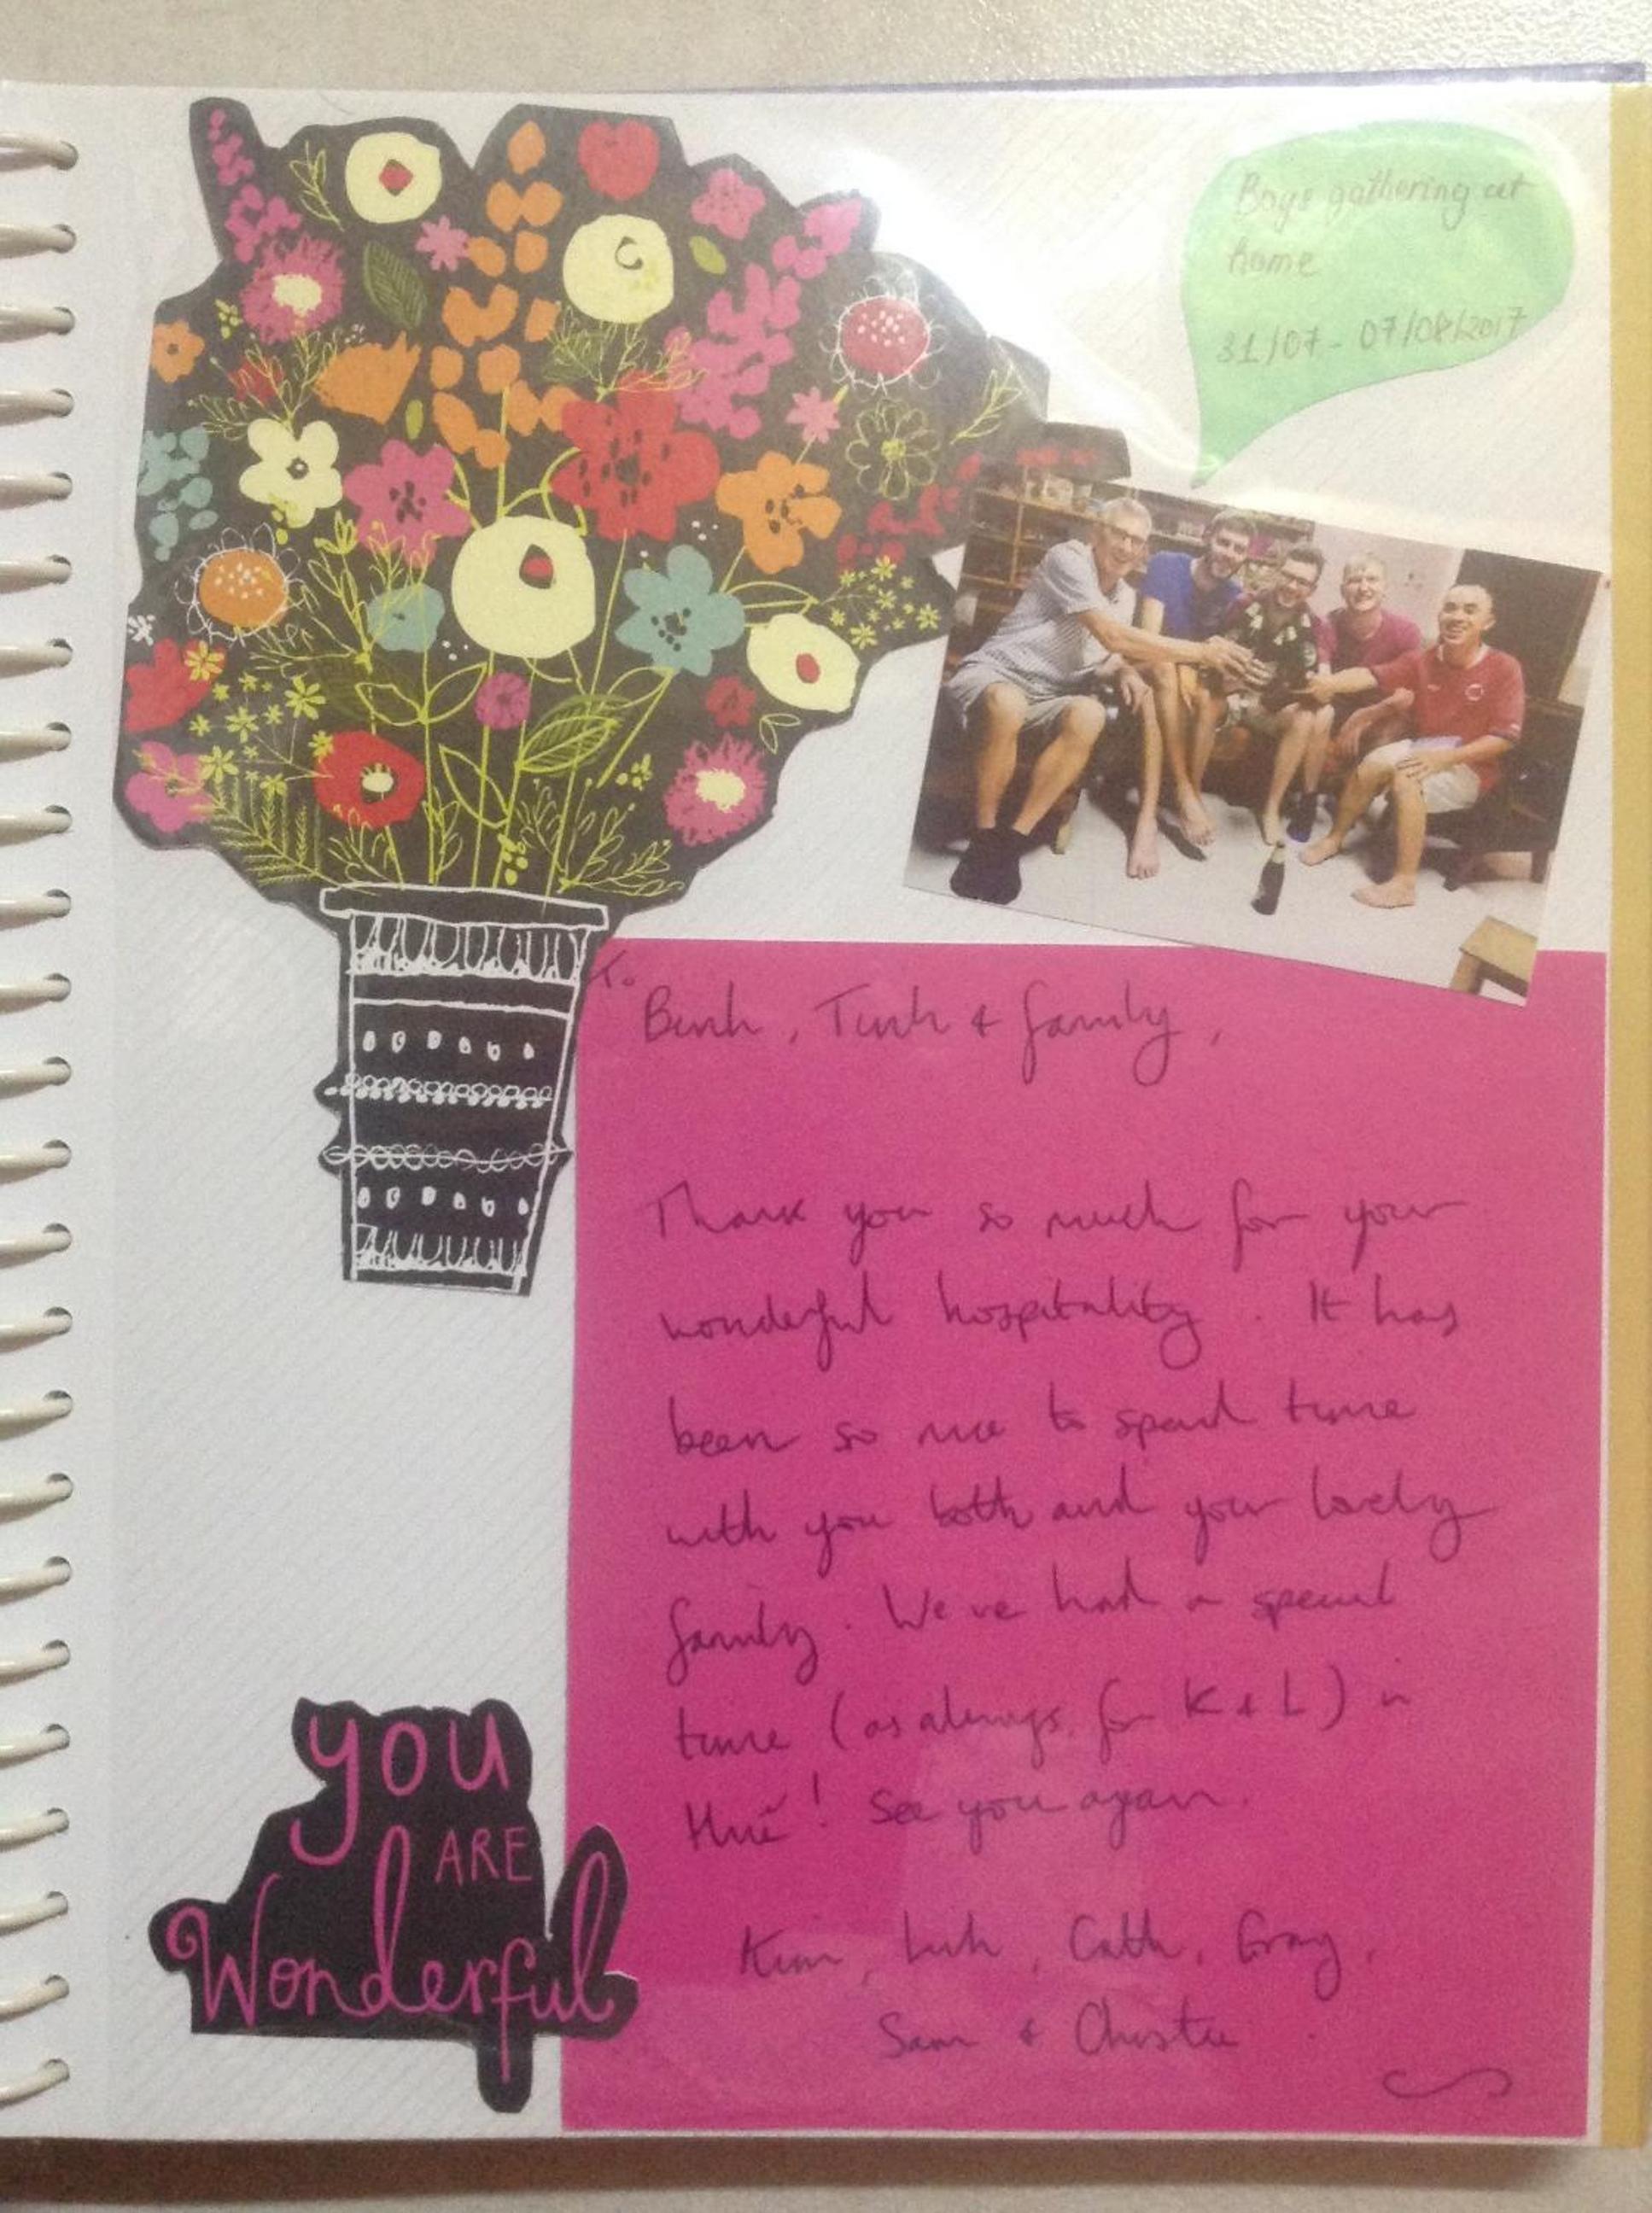 Boys gathering at
home
31/07 - 07/08/2017
To
Binh, Tinh & family,
Thank you so much for your
wonderful hospitality. It has
been so nice to spend time
with you both and your lovely
family. We've had a special
time (as always, for K & L) in
Huế! See you again.
Kim, Linh, Cath, Gray,
Sam & Christie
you
ARE
Wonderful